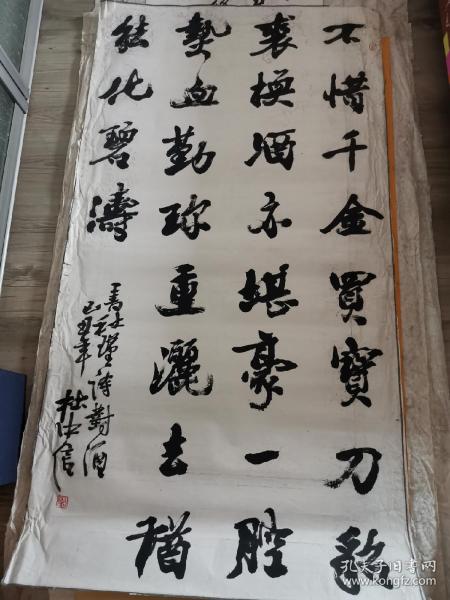 不惜千金買寶刀貂
裘換酒亦堪豪一腔
熱血勤珍重灑去猶
能化碧濤
書秋瑾詩對酒
己丑年 杜中信
孔夫子旧书网